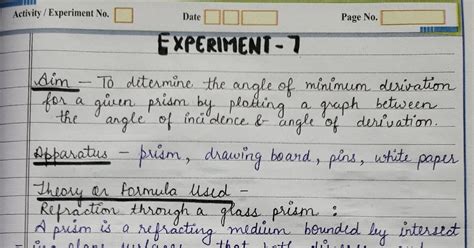 Activity / Experiment No.
Date
Page No.
EXPERIMENT - 7
Aim — To ditermine the angle of minimum derivation
for a given prism by plotting a graph between
the angle of incidence & angle of derivation.
Apparatus — prism, drawing board, pins, white paper
Theory or Formula Used —
Refraction through a glass prism :
A prism is a refracting medium bounded by intersect